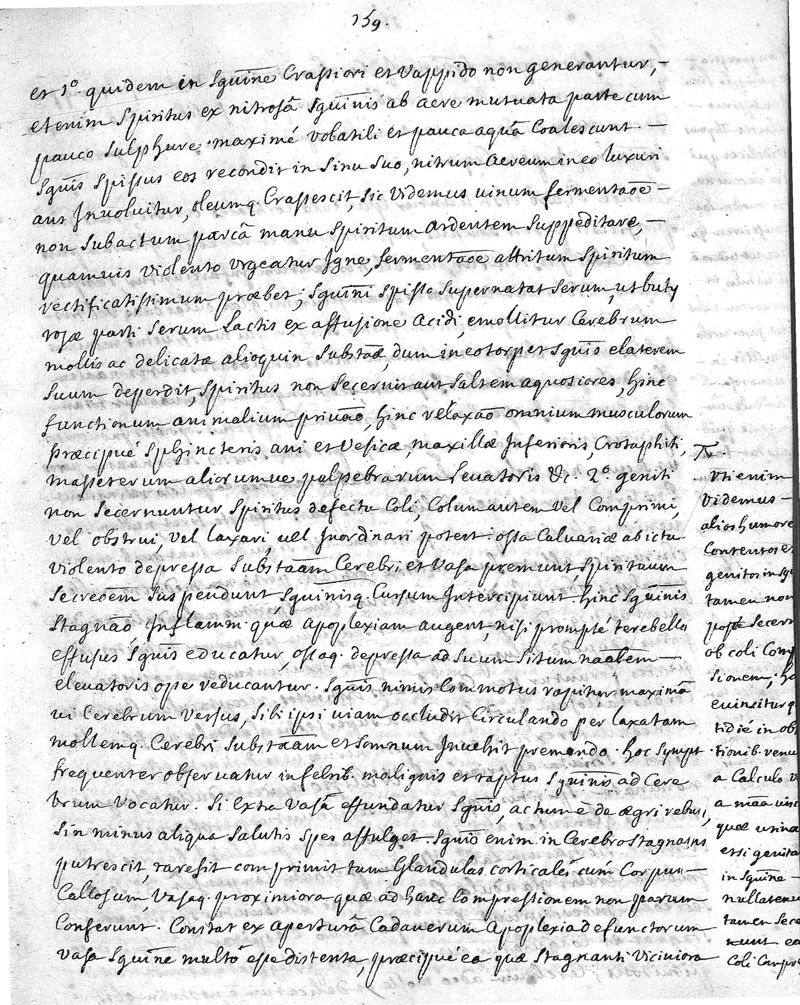 159.
et 1º. quidem in Sguīne Crassiori et Vappido non generantur, –
etenim Spiritus ex nitrosâ Sguinis ab aere mutuata parte cum
pauco Sulphure maximé volatili et pauca aquâ Coalescunt. –
Sguis Spissus eos recondit in Sinu Suo, nitrum Aereum in eo
aut Involuitur, oleumq. Crassescit, Sic Videmus uinum fermentaõe –
non Subactum parcâ manu Spiritum ardentem Suppeditare, –
quamuis violento Vrgeatur Igne, fermentaõe attritum Spiritum
rectificatissimum præbet; Sguini Spisso Supernatat Serum, ut buty
rosæ parti Serum Lactis ex affusione Acidi, emollitur Cerebrum
mollis ac delicatæ alioquin Substāæ, dum in eo torpet Sguis elaterem
Suum deperdit, Spiritus non Secernit aut Saltem aquosiores, hinc
functionum animalium priuaõ, hinc relaxaõ omnium musculorum
Præcipué Sphincteris ani et Vesicæ, maxillæ Inferioris, Crotaphiti,
masseterum aliorumue palpebrarum Leuatoris &c. 2º. geniti
non Secernuntur Spiritus defectu Coli, Colum autem Vel Comprimi,
Vel obstrui, Vel laxari uel Inordinari potest: ossa Caluariæ ab ictu
violento depressa Substāam Cerebri et Vasa premunt, Spirituum
Secreõem Suspendunt Sguinisq. Cursum Intercipiunt hinc Sguinis
Stagnaõ, Inflamm. quæ Apoplexiam augent, nisi prompté terebello
effusus Sguis educatur, ossaq. depressa ad Suum Situm naālem –
eleuatoris ope reducantur. Sguis nimis Commotus rapitur maximâ
ui Cerebrum Versus, Sibi ipsi uiam occludit Circulando per laxatam
mollemq. Cerebri Substāam et Somnum Inuehit premendo. hoc Sympt.
frequenter obseruatur in febrib. malignis et raptus Sguinis ad Cere
brum Vocatur. Si extra Vasâ effundatur Sguis, actum é de ægri rebus,
Sin minus aliqua Salutis Spes affulget. Sguis enim in Cerebro Stagnans
putrescit, rarefit comprimit tum Glandulas corticales cum Corpus –
Callosum, Vasaq. proximiora quæ ad hanc Compressionem non parum
Conferunt. Constat ex Aperturâ Cadauerum Apoplexia defunctorum
Vasa Sguine multó esse distenta, præcipué ea quæ Stagnanti Viciniora
Vti enim
Videmus –
alios humore
Contentos et
genitos in Sgu
tamen non
posse Secern
ob coli Comp
Sionem; h
euincitur q
tidié in ob
tionib. Venu
a Calculo V
a māa
quæ urina
etsi genita
in Sguine –
nullatenu
tamen Sece
nunt
Coli Compr